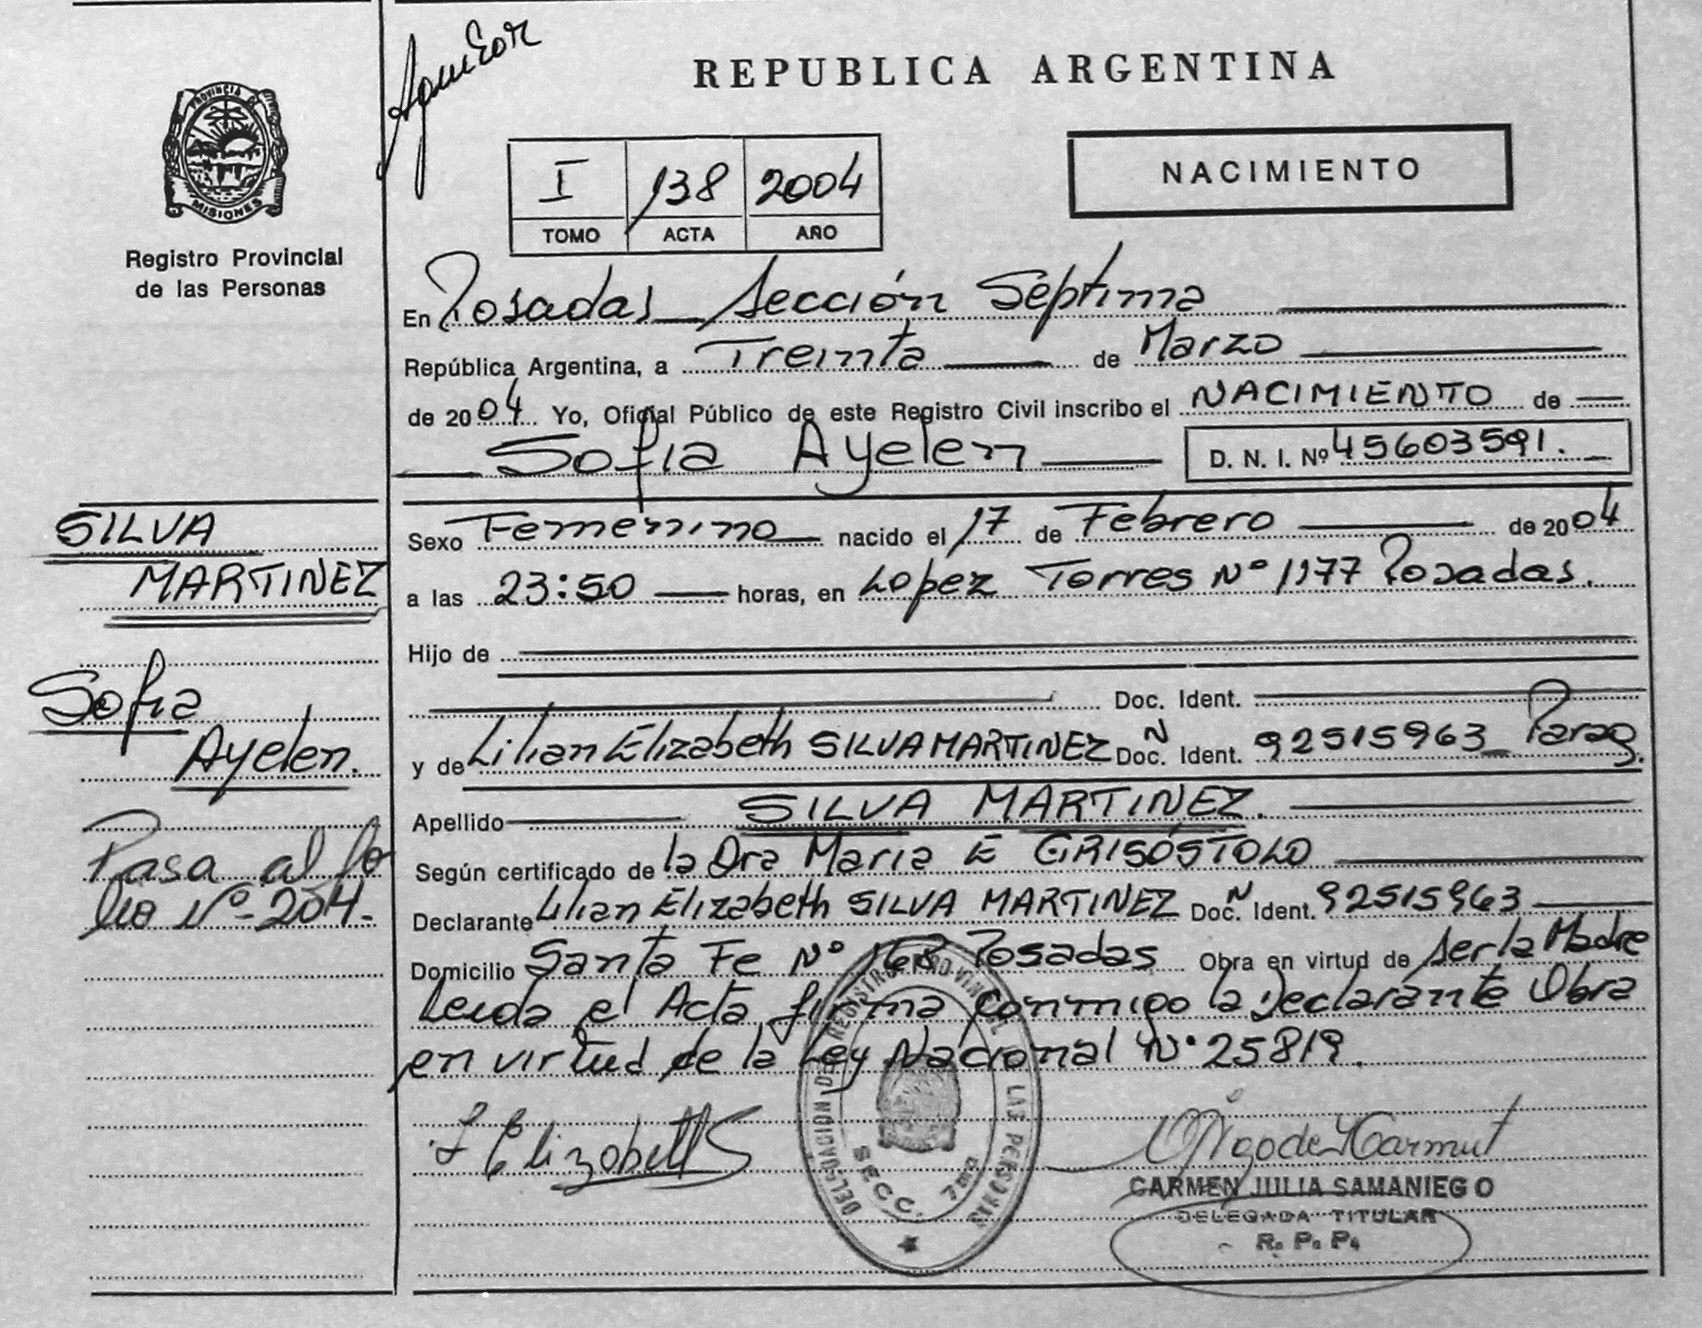 REPUBLICA ARGENTINA
PROVINCIA DE
MISIONES
Registro Provincial
de las Personas
I 138 2004
TOMO ACTA AÑO
NACIMIENTO
En Posadas Sección Séptima
República Argentina, a Treinta de Marzo
de 2004 Yo, Oficial Público de este Registro Civil inscribo el NACIMIENTO de
Sofia Ayelen D. N. I. Nº 45603591.
Sexo Femenino nacido el 17 de Febrero de 2004
a las 23:50 horas, en Lopez Torres Nº 1177 Posadas.
Hijo de
Doc. Ident.
y de Lilian Elizabeth SILVA MARTINEZ Doc. N Ident. 92515963 Parag.
Apellido SILVA MARTINEZ.
Según certificado de la Dra Maria E GRISÓSTOLO
Declarante Lilian Elizabeth SILVA MARTINEZ Doc. N Ident. 92515963
Domicilio Santa Fe Nº 168 Posadas Obra en virtud de ser la Madre
Leida el Acta firma conmigo la Declarante Obra
en virtud de la Ley Nacional Nº 25819.
SILVA
MARTINEZ
Sofia
Ayelen.
Pasa al fo
lio Nº 204.
L Elizabeth S
DELEGACION DE REGISTRO PROVINCIAL DE LAS PERSONAS
SECC. 7ma
CARMEN JULIA SAMANIEGO
DELEGADA TITULAR
R. P. P.